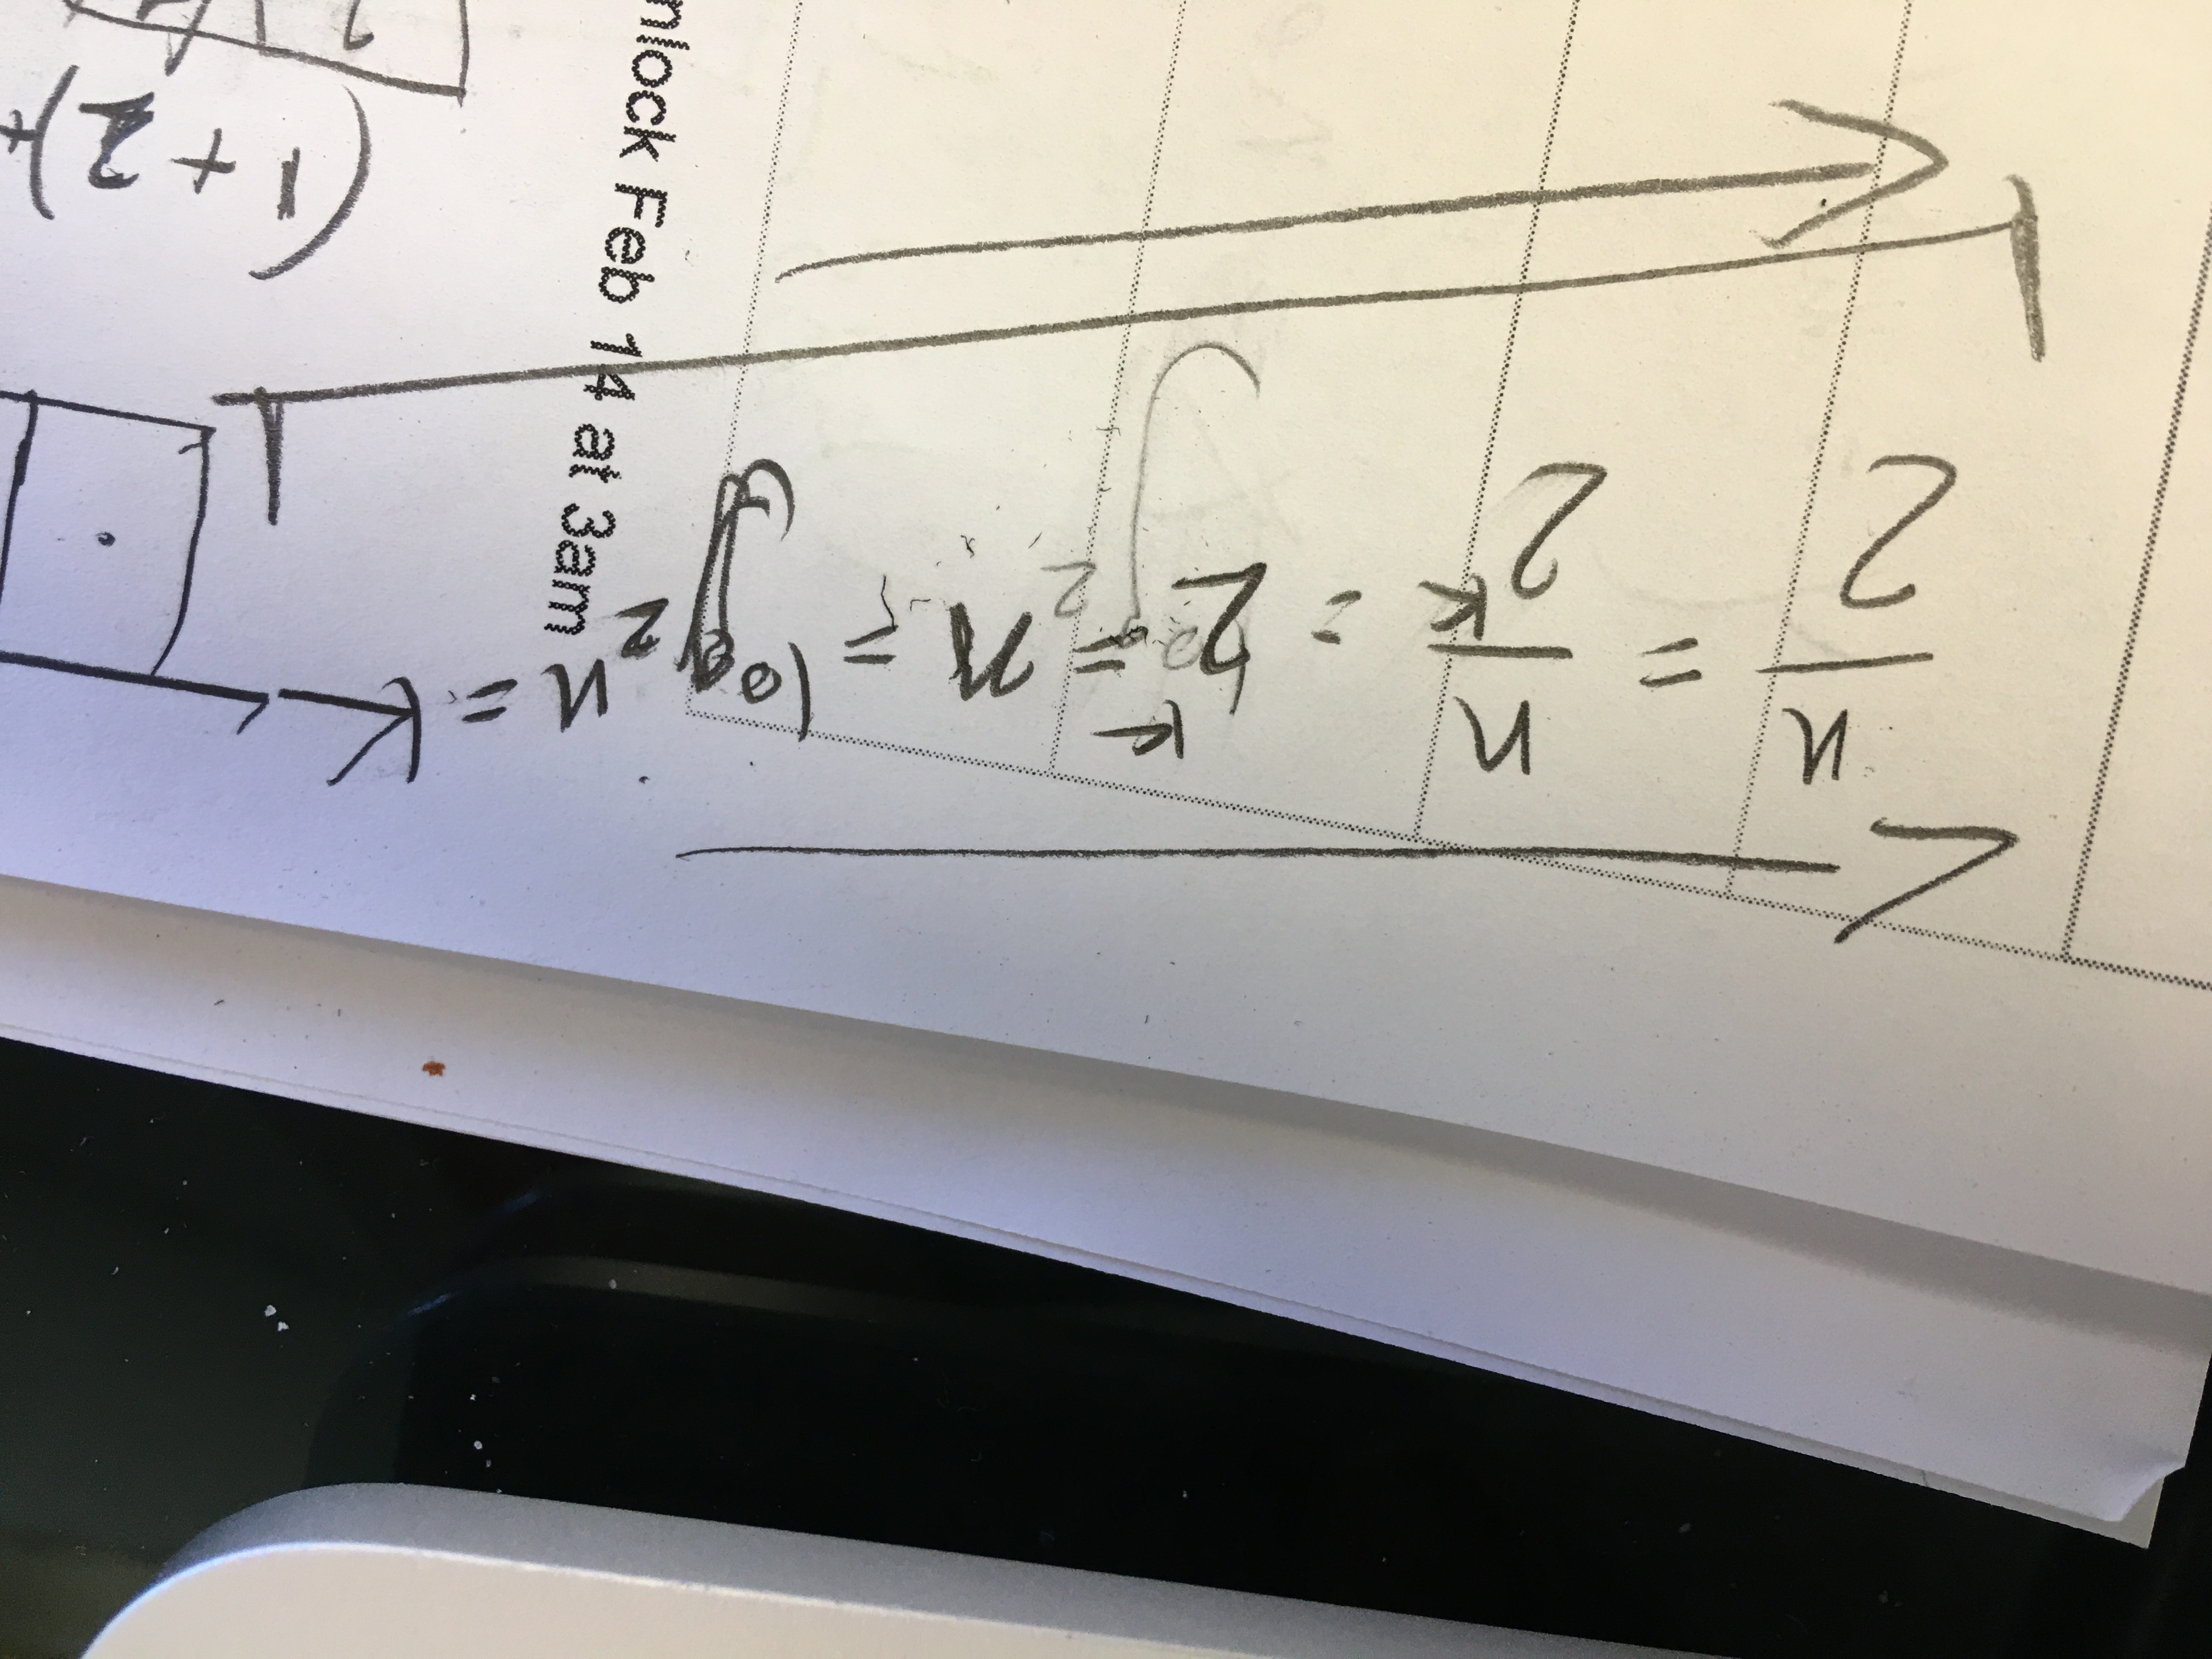 n/2 = n/2^K = 2^K = n = log₂ n = K
nlock Feb 14 at 3am
(1 + 2) +
2